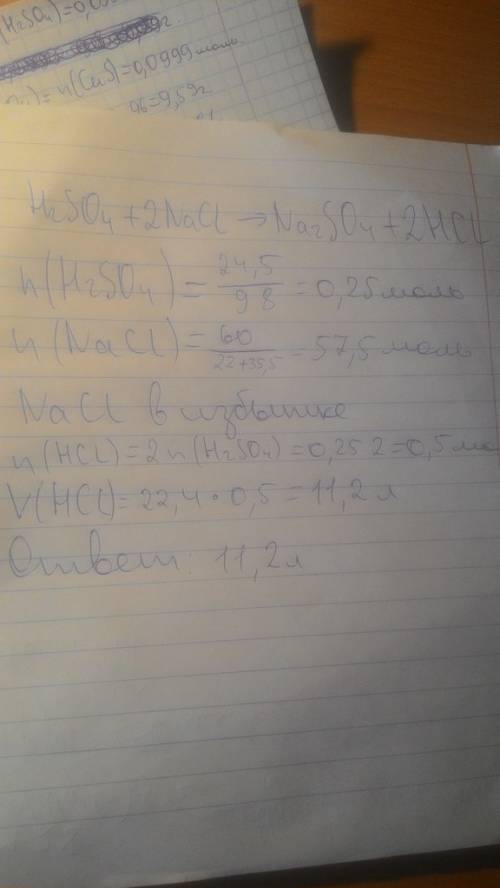 (H₂SO₄)=0,0
n(CuS)=0,0999 моль
96=9,59г
H₂SO₄+2NaCl→Na₂SO₄+2HCl
n(H₂SO₄)=24,5/98=0,25моль
n(NaCl)=60/22+35,5=57,5моль
NaCl в избытке
n(HCl)=2n(H₂SO₄)=0,25 2=0,5мо
V(HCl)=22,4·0,5=11,2л
Ответ: 11,2л